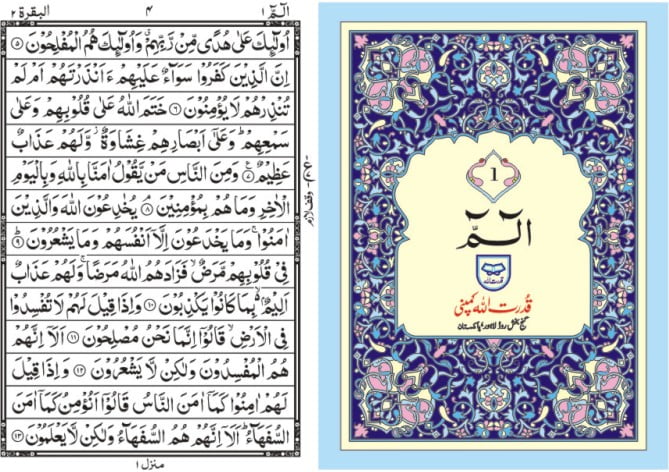 الٓمّٓ ١ ٤ البقرة ٢
اُولٰٓئِكَ عَلٰى هُدًى مِّنْ رَّبِّهِمْ ۗ وَاُولٰٓئِكَ هُمُ الْمُفْلِحُوْنَ ۝٥
اِنَّ الَّذِيْنَ كَفَرُوْا سَوَآءٌ عَلَيْهِمْ ءَاَنْذَرْتَهُمْ اَمْ لَمْ
تُنْذِرْهُمْ لَا يُؤْمِنُوْنَ ۝٦ خَتَمَ اللّٰهُ عَلٰى قُلُوْبِهِمْ وَعَلٰى
سَمْعِهِمْ ؕ وَعَلٰٓى اَبْصَارِهِمْ غِشَاوَةٌ ؗ وَّلَهُمْ عَذَابٌ
عَظِيْمٌ ۝٧ وَمِنَ النَّاسِ مَنْ يَّقُوْلُ اٰمَنَّا بِاللّٰهِ وَبِالْيَوْمِ
الْاٰخِرِ وَمَا هُمْ بِمُؤْمِنِيْنَ ۝٨ يُخٰدِعُوْنَ اللّٰهَ وَالَّذِيْنَ
اٰمَنُوْا ۚ وَمَا يَخْدَعُوْنَ اِلَّآ اَنْفُسَهُمْ وَمَا يَشْعُرُوْنَ ۝٩
فِيْ قُلُوْبِهِمْ مَّرَضٌ ۙ فَزَادَهُمُ اللّٰهُ مَرَضًا ۚ وَلَهُمْ عَذَابٌ
اَلِيْمٌ ۙ بِمَا كَانُوْا يَكْذِبُوْنَ ۝١٠ وَاِذَا قِيْلَ لَهُمْ لَا تُفْسِدُوْا
فِي الْاَرْضِ ۙ قَالُوْٓا اِنَّمَا نَحْنُ مُصْلِحُوْنَ ۝١١ اَلَآ اِنَّهُمْ
هُمُ الْمُفْسِدُوْنَ وَلٰكِنْ لَّا يَشْعُرُوْنَ ۝١٢ وَاِذَا قِيْلَ
لَهُمْ اٰمِنُوْا كَمَآ اٰمَنَ النَّاسُ قَالُوْٓا اَنُؤْمِنُ كَمَآ اٰمَنَ
السُّفَهَآءُ ؕ اَلَآ اِنَّهُمْ هُمُ السُّفَهَآءُ وَلٰكِنْ لَّا يَعْلَمُوْنَ ۝١٣
منزل ١
وقف لازم
1
الٓمّٓ
قدرت اللہ
قدرت اللہ کمپنی
گنج بخش روڈ لاہور، پاکستان